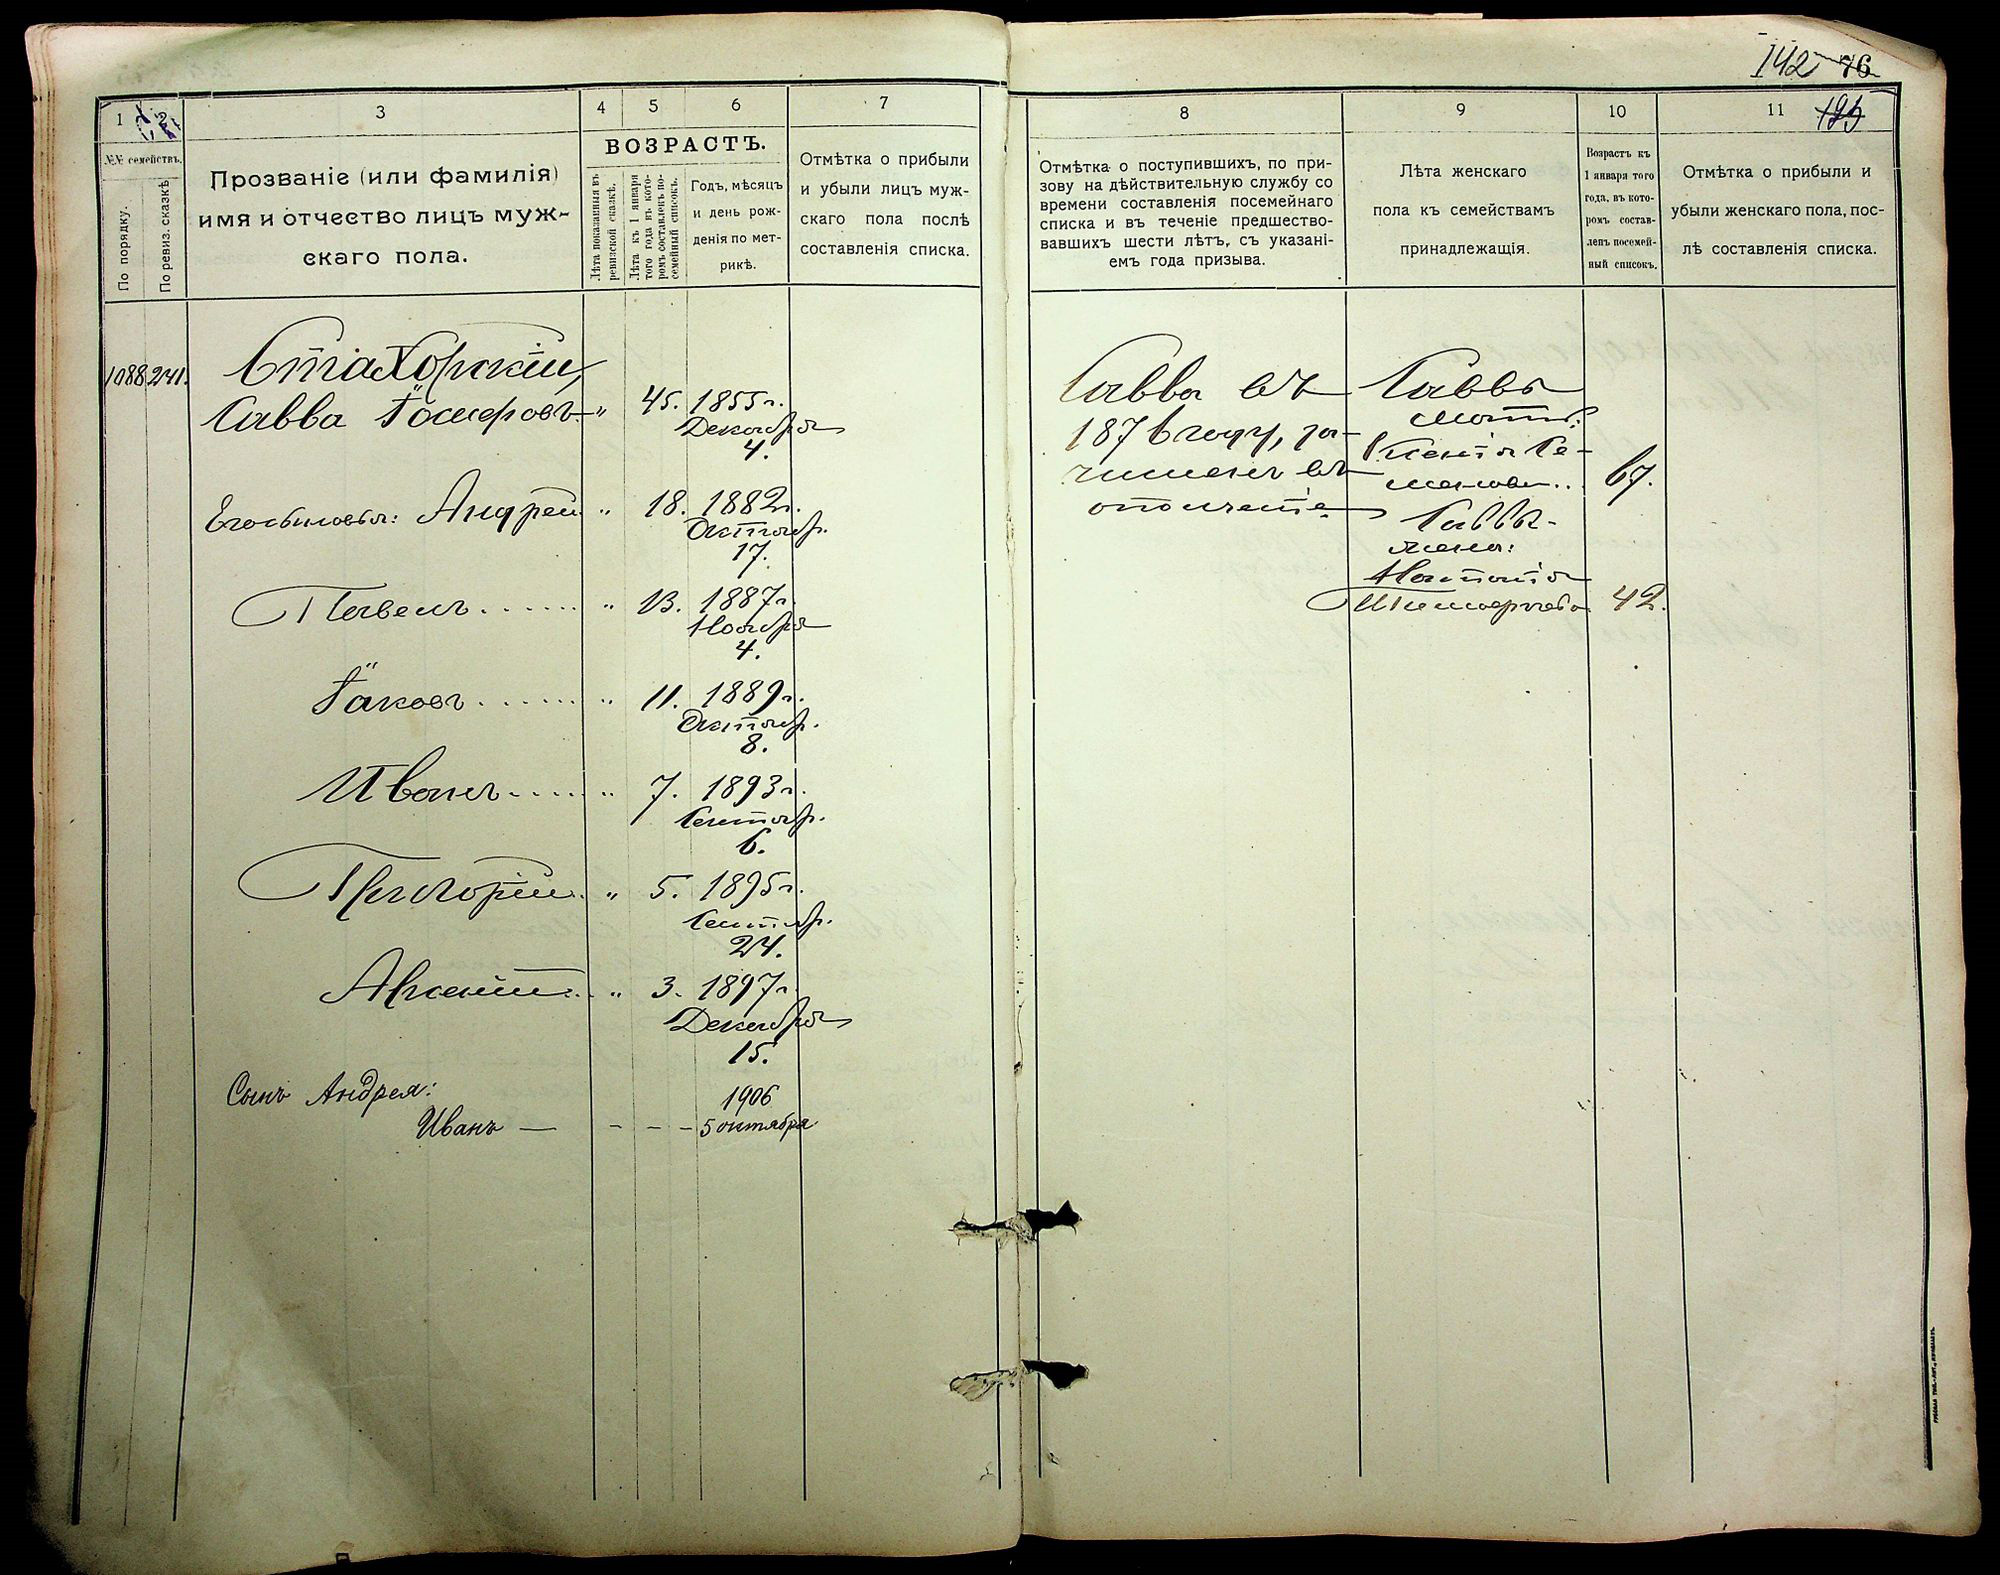 142 76
1
2
3
4
5
6
7
№№ семействъ.
По порядку.
По ревиз. сказкѣ
Прозваніе (или фамилія)
имя и отчество лицъ муж-
скаго пола.
ВОЗРАСТЪ.
Лѣта показанныя въ
ревизской сказкѣ.
Лѣта къ 1 января
того года въ кото-
ромъ составленъ по-
семейный списокъ.
Годъ, мѣсяцъ
и день рож-
денія по мет-
рикѣ.
Отмѣтка о прибыли
и убыли лицъ муж-
скаго пола послѣ
составленія списка.
1088 241.
Стахорскій,
Савва " 45. 1855 г.
Декабря
4.
Андрей " 18. 1882 г.
Октябр.
17.
Павелъ " 13. 1887 г.
Ноября
4.
Іаковъ " 11. 1889 г.
Октябр.
8.
Иванъ " 7. 1893 г.
Сентябр.
6.
Григорій " 5. 1895 г.
Сентябр.
24.
Арсеній " 3. 1897 г.
Декабря
15.
Сынъ Андрея: 1906
Иванъ — - - - 5 октября
8
9
10
11
Отмѣтка о поступившихъ, по при-
зову на дѣйствительную службу со
времени составленія посемейнаго
списка и въ теченіе предшество-
вавшихъ шести лѣтъ, съ указані-
емъ года призыва.
Лѣта женскаго
пола къ семействамъ
принадлежащія.
Возрастъ къ
1 января того
года, въ кото-
ромъ состав-
ленъ посемей-
ный списокъ.
Отмѣтка о прибыли и
убыли женскаго пола, пос-
лѣ составленія списка.
Савва въ
1876 году, за-
численъ въ
ополченіе
Саввы
мать:
Ксенія Се-
менова.. 67.
Саввы-
жена:
Наталія
42.